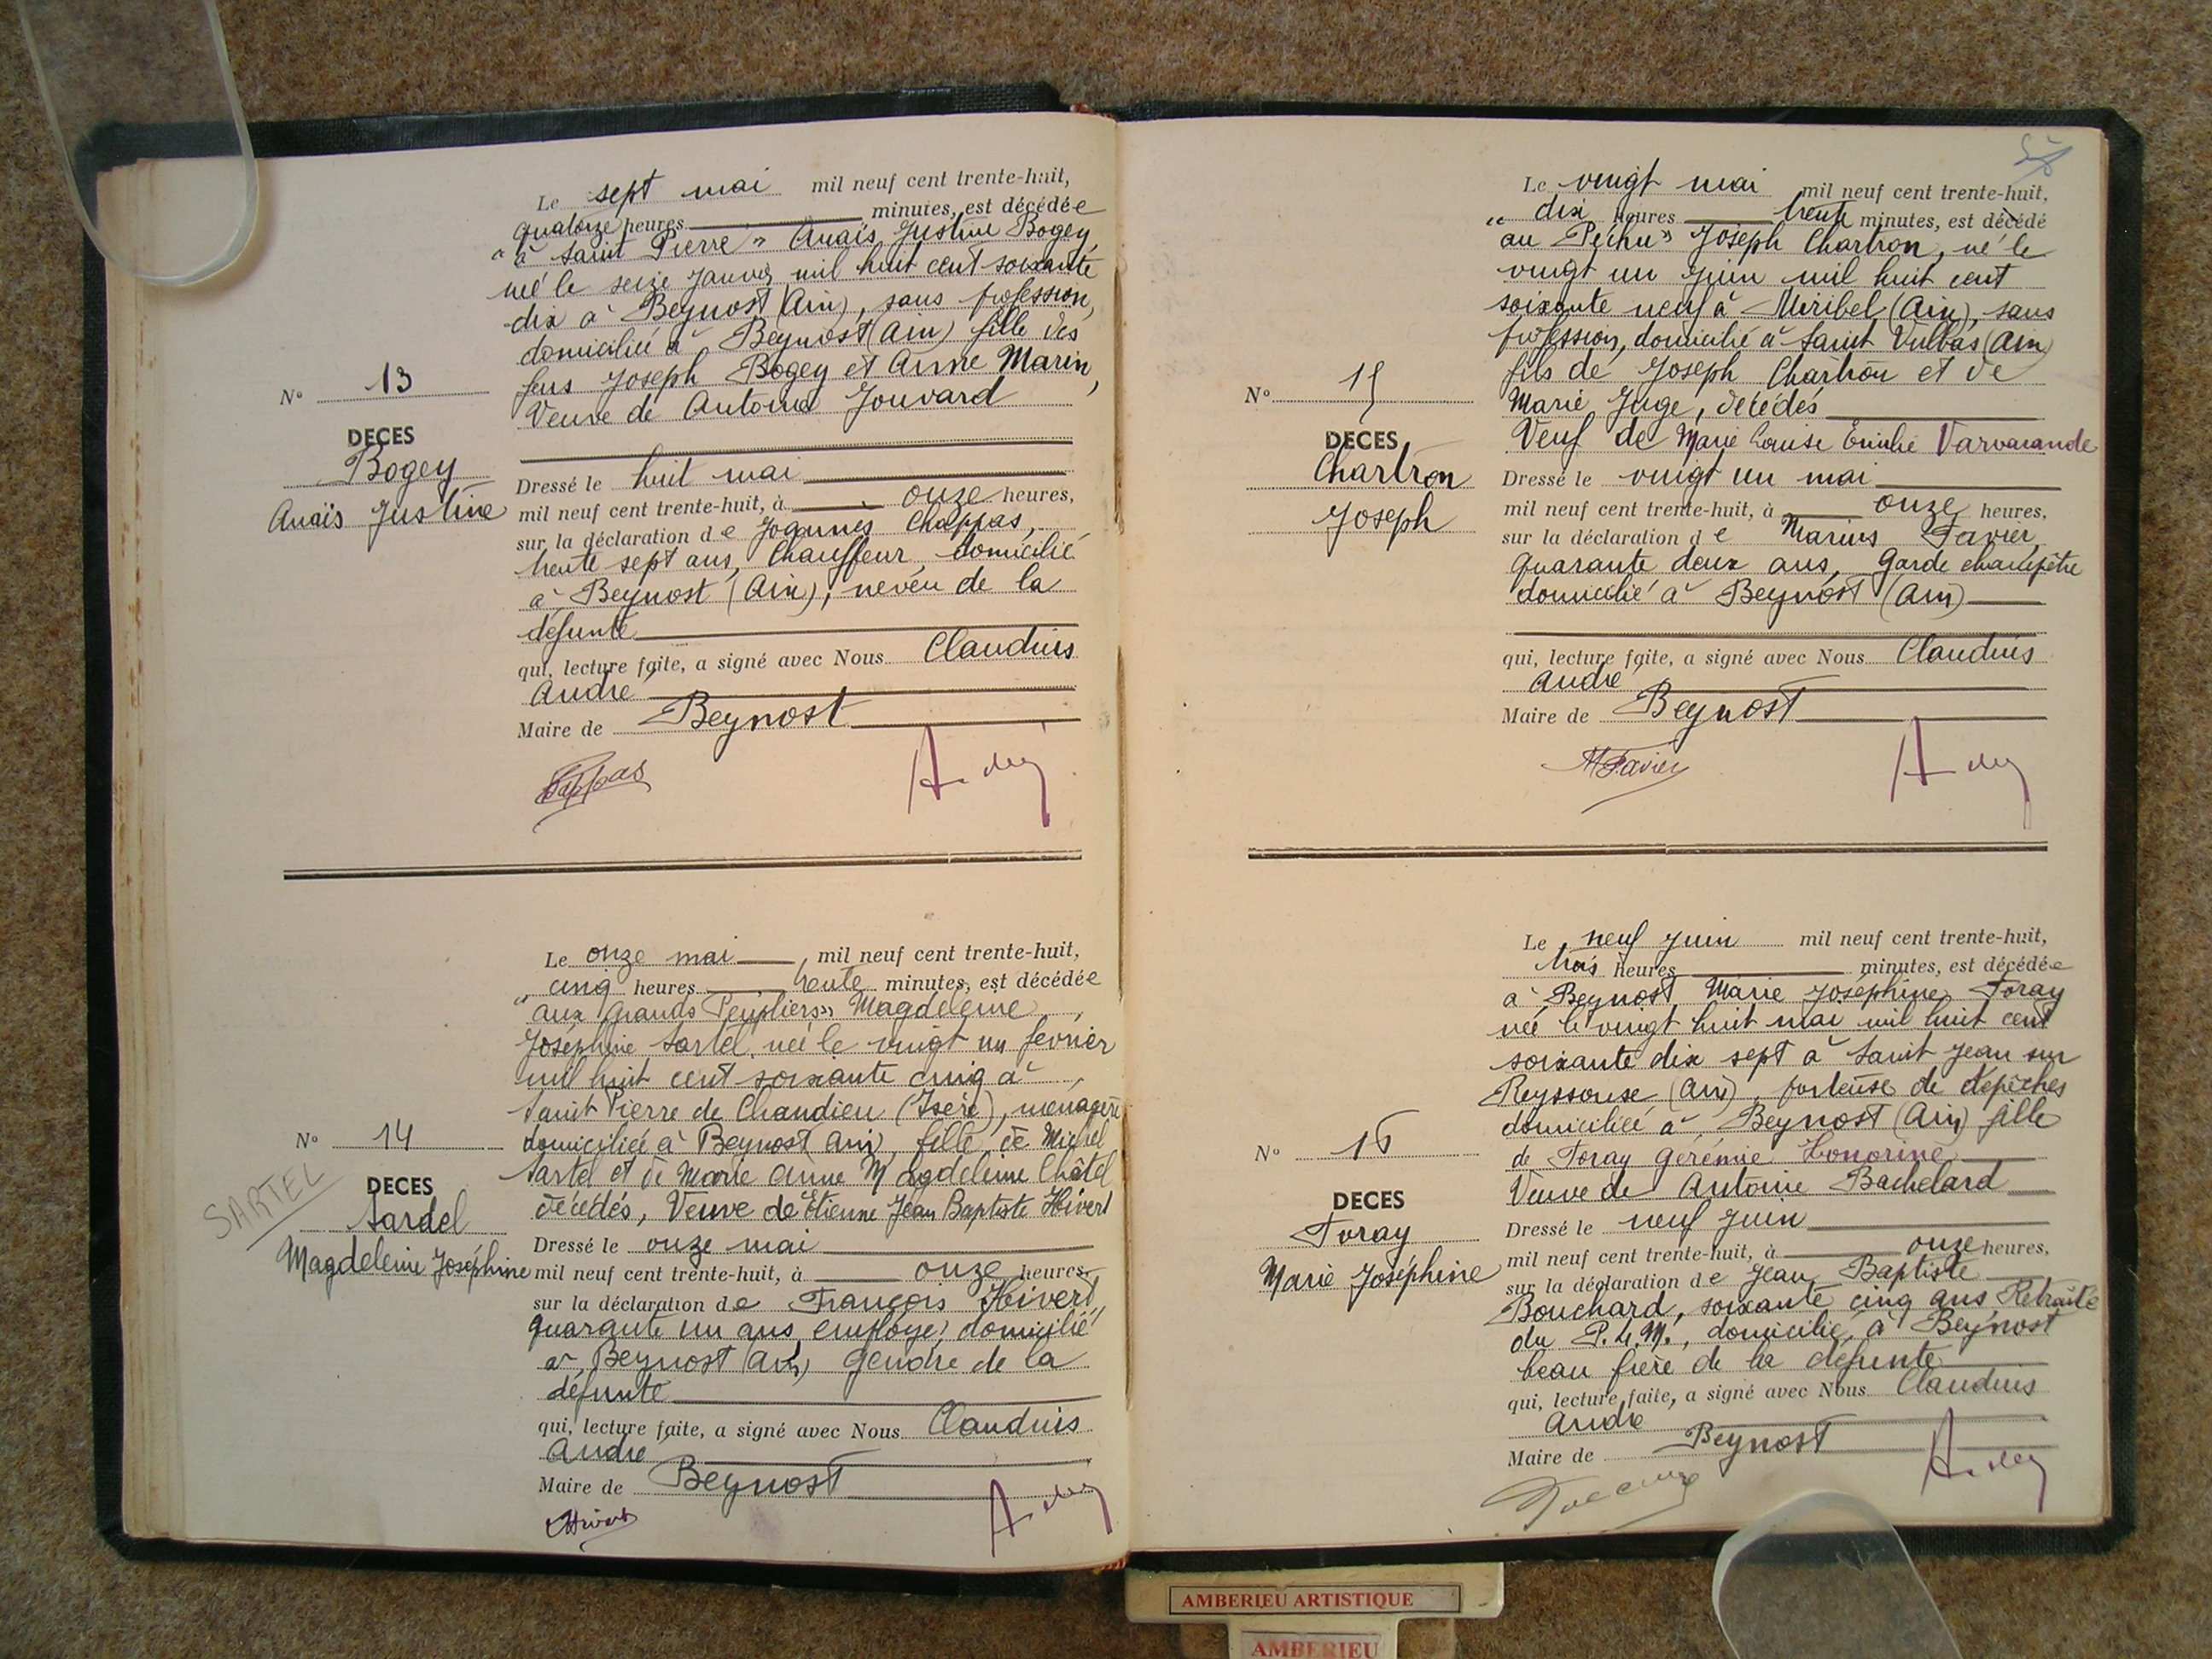 Le sept mai mil neuf cent trente-huit,
quatorze heures minutes, est décédée
"à Saint Pierre" Anaïs Justine Bogey
née le seize janvier mil huit cent soixante
dix à Beynost (Ain), sans profession,
domiciliée à Beynost (Ain) fille des
feus Joseph Bogey et Anne Marin,
Veuve de Antoine Jouvard
N° 13
DECES
Bogey
Anaïs Justine
Dressé le huit mai
mil neuf cent trente-huit, à onze heures,
sur la déclaration de Joannès Chappas,
trente sept ans, Chauffeur, domicilié
à Beynost (Ain), neveu de la
défunte
qui, lecture faite, a signé avec Nous Claudius
André
Maire de Beynost
Chappas
André
Le onze mai mil neuf cent trente-huit,
cinq heures trente minutes, est décédée
"aux Grands Peupliers" Magdeleine
Joséphine Sartel, née le vingt un février
mil huit cent soixante cinq à
Saint Pierre de Chandieu (Isère), ménagère
domiciliée à Beynost Ain), fille de Michel
Sartel et de Marie Anne Magdeleine Châtel
décédés, Veuve de Etienne Jean Baptiste Hivert
N° 14
SARTEL
DECES
Sardel
Magdeleine Joséphine
Dressé le onze mai
mil neuf cent trente-huit, à onze heures,
sur la déclaration de François Hivert,
quarante un ans, employé, domicilié
à Beynost (Ain) gendre de la
défunte
qui, lecture faite, a signé avec Nous Claudius
André
Maire de Beynost
Hivert
André
Le vingt mai mil neuf cent trente-huit,
dix heures trente minutes, est décédé
"au Péchu" Joseph Chartron, né le
vingt un juin mil huit cent
soixante neuf à Miribel (Ain), sans
profession, domicilié à Saint Vulbas (Ain)
fils de Joseph Chartron et de
Marie Juge, décédés
Veuf de Marie Louise Emilie Varvarande
N° 15
DECES
Chartron
Joseph
Dressé le vingt un mai
mil neuf cent trente-huit, à onze heures,
sur la déclaration de Marius Favier,
quarante deux ans, Garde champêtre
domicilié à Beynost (Ain)
qui, lecture faite, a signé avec Nous Claudius
André
Maire de Beynost
M Favier
André
Le neuf juin mil neuf cent trente-huit,
trois heures minutes, est décédée
à Beynost Marie Joséphine Foray
née le vingt huit mai mil huit cent
soixante dix sept à Saint Jean sur
Reyssouse (Ain) porteuse de dépêches
domiciliée à Beynost (Ain) fille
de Foray Gérémie Honorine
Veuve de Antoine Bachelard
N° 16
DECES
Foray
Marie Joséphine
Dressé le neuf juin
mil neuf cent trente-huit, à onze heures,
sur la déclaration de Jean Baptiste
Bouchard, soixante cinq ans, Retraité
du P.L.M., domicilié à Beynost
beau frère de la défunte
qui, lecture faite, a signé avec Nous Claudius
André
Maire de Beynost
André
AMBERIEU ARTISTIQUE
AMBERIEU